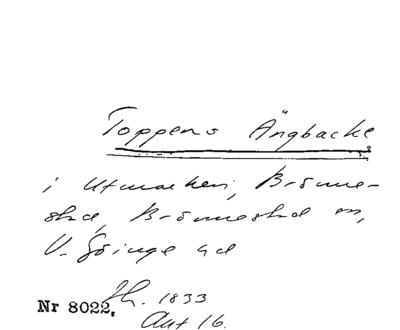 Toppens Ängbacke
i Utmarken, Brönne-
stad, Brönnestad sn,
V. Göinge hd
Nr 8022, Jh. 1833
Akt 16.